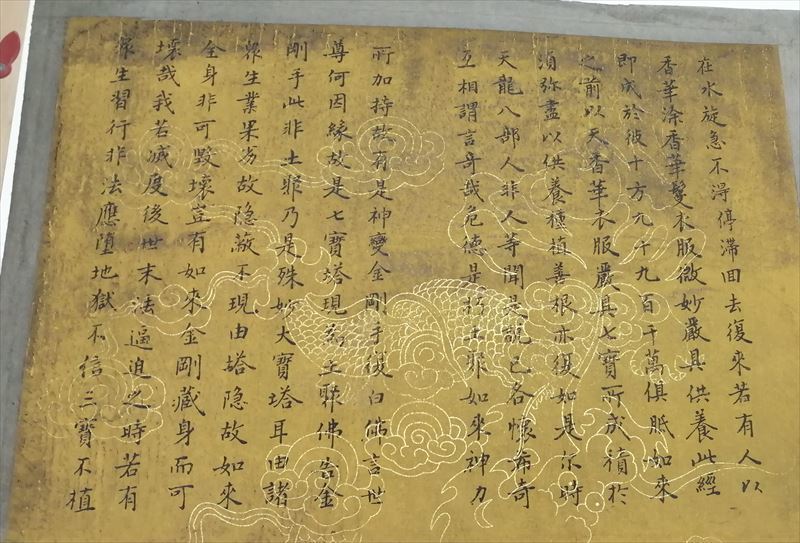 在水旋急不淂停滯回去復來若有人以
香華塗香華鬘衣服微妙嚴具供養此經
即成於彼十方九十九百千萬俱胝如來
之前以天香華衣服嚴具七寶所成積於
湏弥盡以供養種植善根亦復如是尒時
天龍八部人非人等聞是說已各懷希奇
互相謂言奇哉危德是朽土耶如來神力
所加持故有是神變金剛手復白佛言世
尊何因緣故是七寶塔現為土聚佛告金
剛手此非土聚乃是殊妙大寶塔耳由諸
衆生業果劣故隐蔽不現由塔隐故如來
全身非可毀壞豈有如來金剛藏身而可
壞哉我若滅度後世末法逼迫之時若有
衆生習行非法應墮地獄不信三寶不植